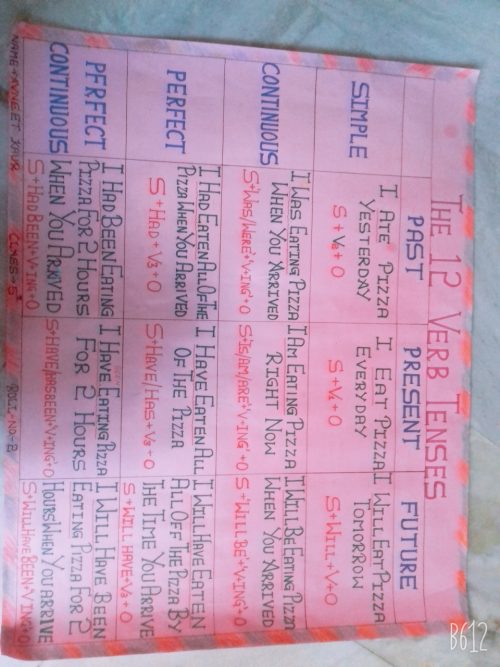 THE 12 VERB TENSES
PAST
PRESENT
FUTURE
SIMPLE
I ATE PIZZA
YESTERDAY
S+V2+O
I EAT PIZZA
EVERYDAY
S+V1+O
I WILL EAT PIZZA
TOMORROW
S+WILL+V+O
CONTINUOUS
I WAS EATING PIZZA
WHEN YOU ARRIVED
S+WAS/WERE+V+ING+O
I AM EATING PIZZA
RIGHT NOW
S+IS/AM/ARE+V+ING+O
I WILL BE EATING PIZZA
WHEN YOU ARRIVED
S+WILL BE+V+ING+O
PERFECT
I HAD EATEN ALL OF THE
PIZZA WHEN YOU ARRIVED
S+HAD+V3+O
I HAVE EATEN ALL
OF THE PIZZA
S+HAVE/HAS+V3+O
I WILL HAVE EATEN
ALL OFF THE PIZZA BY
THE TIME YOU ARRIVE
S+WILL HAVE+V3+O
PERFECT
CONTINUOUS
I HAD BEEN EATING
PIZZA FOR 2 HOURS
WHEN YOU ARRIVED
S+HAD BEEN+V+ING+O
I HAVE EATING PIZZA
FOR 2 HOURS
S+HAVE/HAS BEEN+V+ING+O
I WILL HAVE BEEN
EATING PIZZA FOR 2
HOURS WHEN YOU ARRIVE
S+WILL HAVE BEEN+V+ING+O
NAME KAUR CLASS-5 ROLL.NO-B
B612